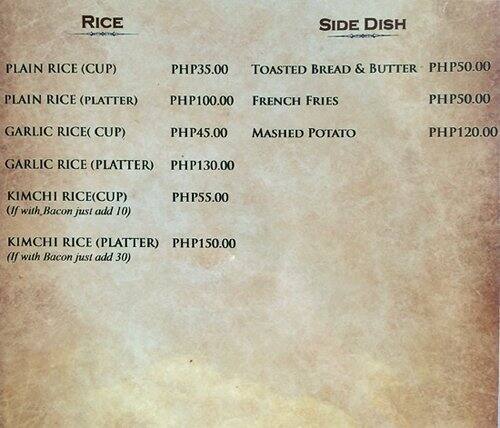 RICE
PLAIN RICE (CUP) PHP35.00
PLAIN RICE (PLATTER) PHP100.00
GARLIC RICE( CUP) PHP45.00
GARLIC RICE (PLATTER) PHP130.00
KIMCHI RICE(CUP) PHP55.00
(If with Bacon just add 10)
KIMCHI RICE (PLATTER) PHP150.00
(If with Bacon just add 30)
SIDE DISH
TOASTED BREAD & BUTTER PHP50.00
FRENCH FRIES PHP50.00
MASHED POTATO PHP120.00